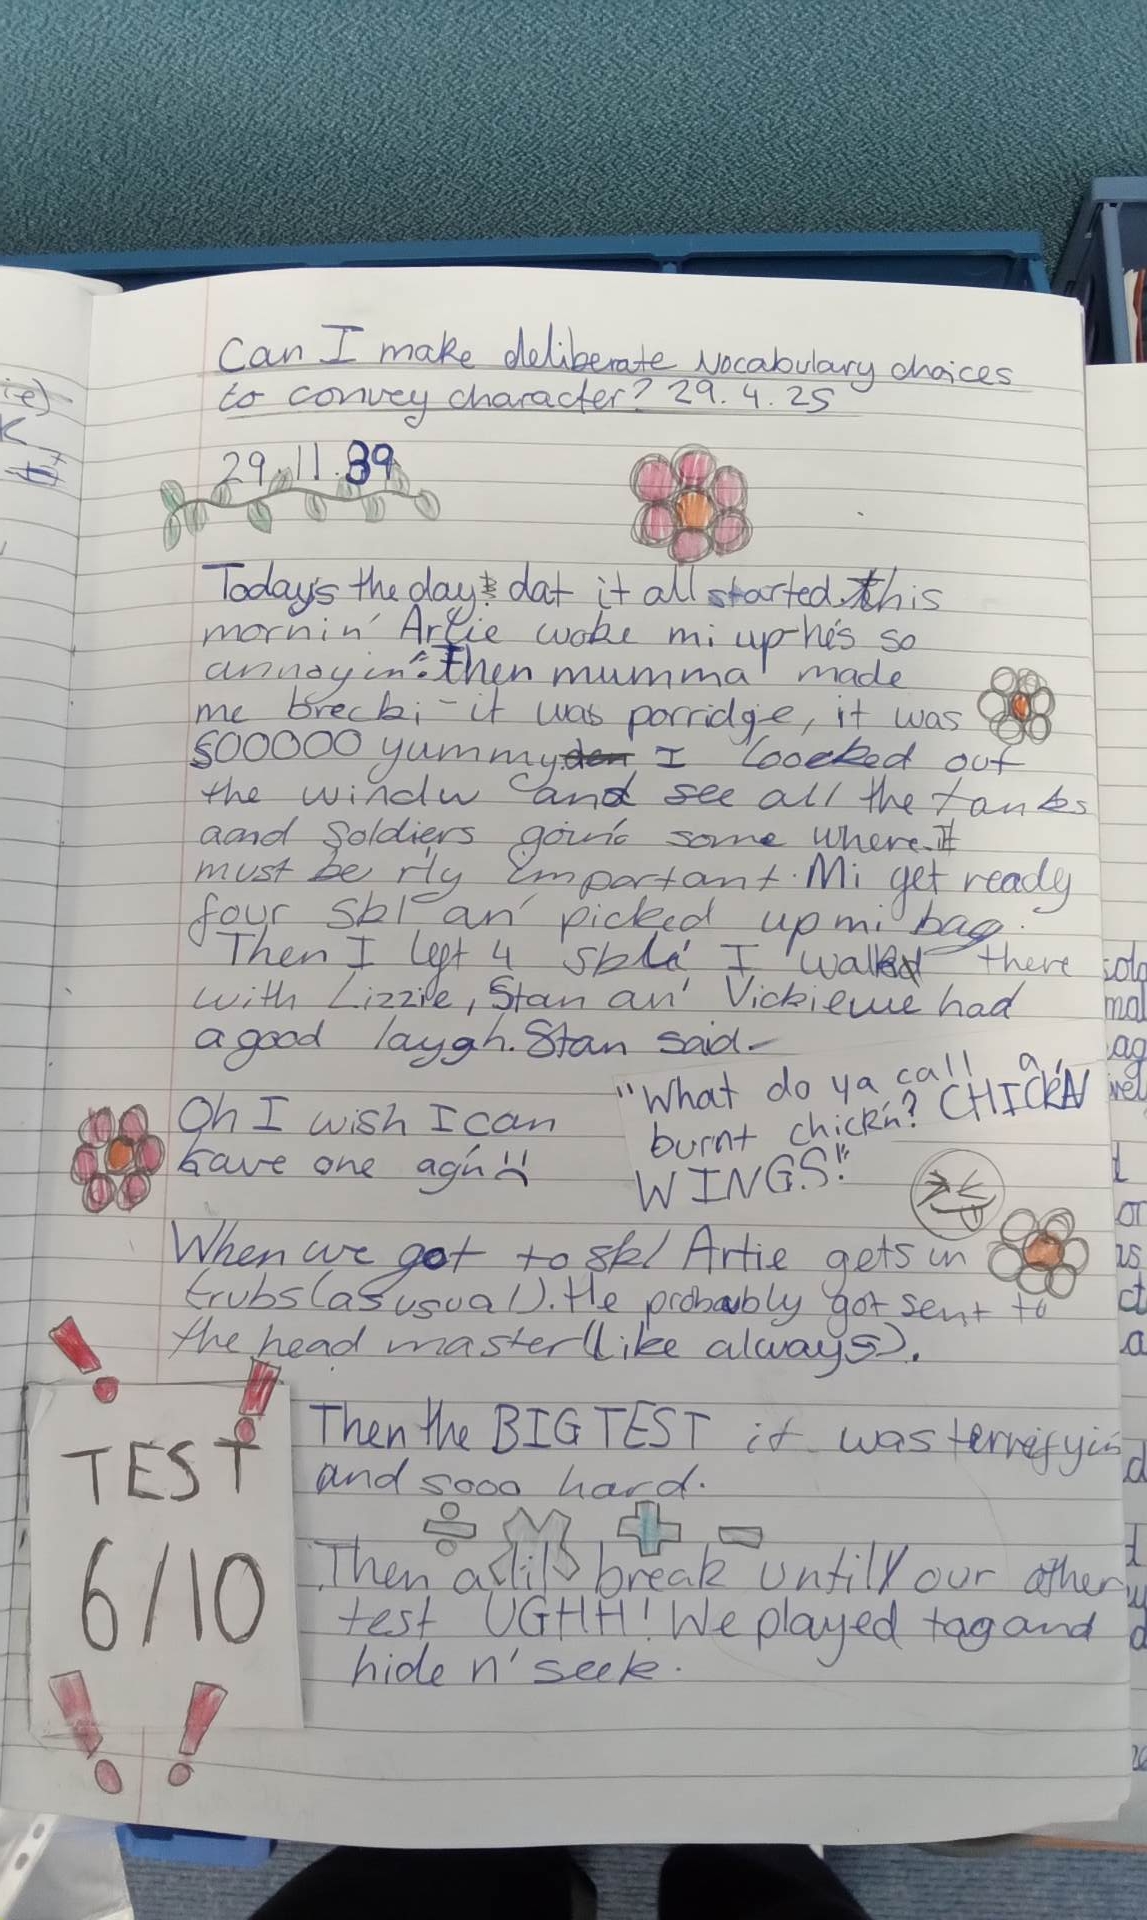 Can I make deliberate vocabulary choices
to convey character? 29.4.25
29.11.39
Today's the day dat it all started. This
mornin' Artie woke mi up-he's so
annoyin'. Then mumma made
me brecki - it was porridge, it was
SOOOOO yummy. I loocked out
the windw and see all the tanks
aand Soldiers goin' some where. It
must be rly important. Mi get ready
four skl an' picked up mi bag.
Then I left 4 skl. I walked there
with Lizzie, Stan an' Vickie we had
a good laygh. Stan said-
"What do ya call a
burnt chick'n? CHICK'N
WINGS!"
Oh I wish I can
have one ag'n
When we got to skl Artie gets in
trubs (as usual). He probably got sent to
the head master (like always).
Then the BIG TEST it was terrefyin
and sooo hard.
TEST
6/10
÷ × + -
Then a lil break untill our other
test UGHH! We played tag and
hide n' seek.